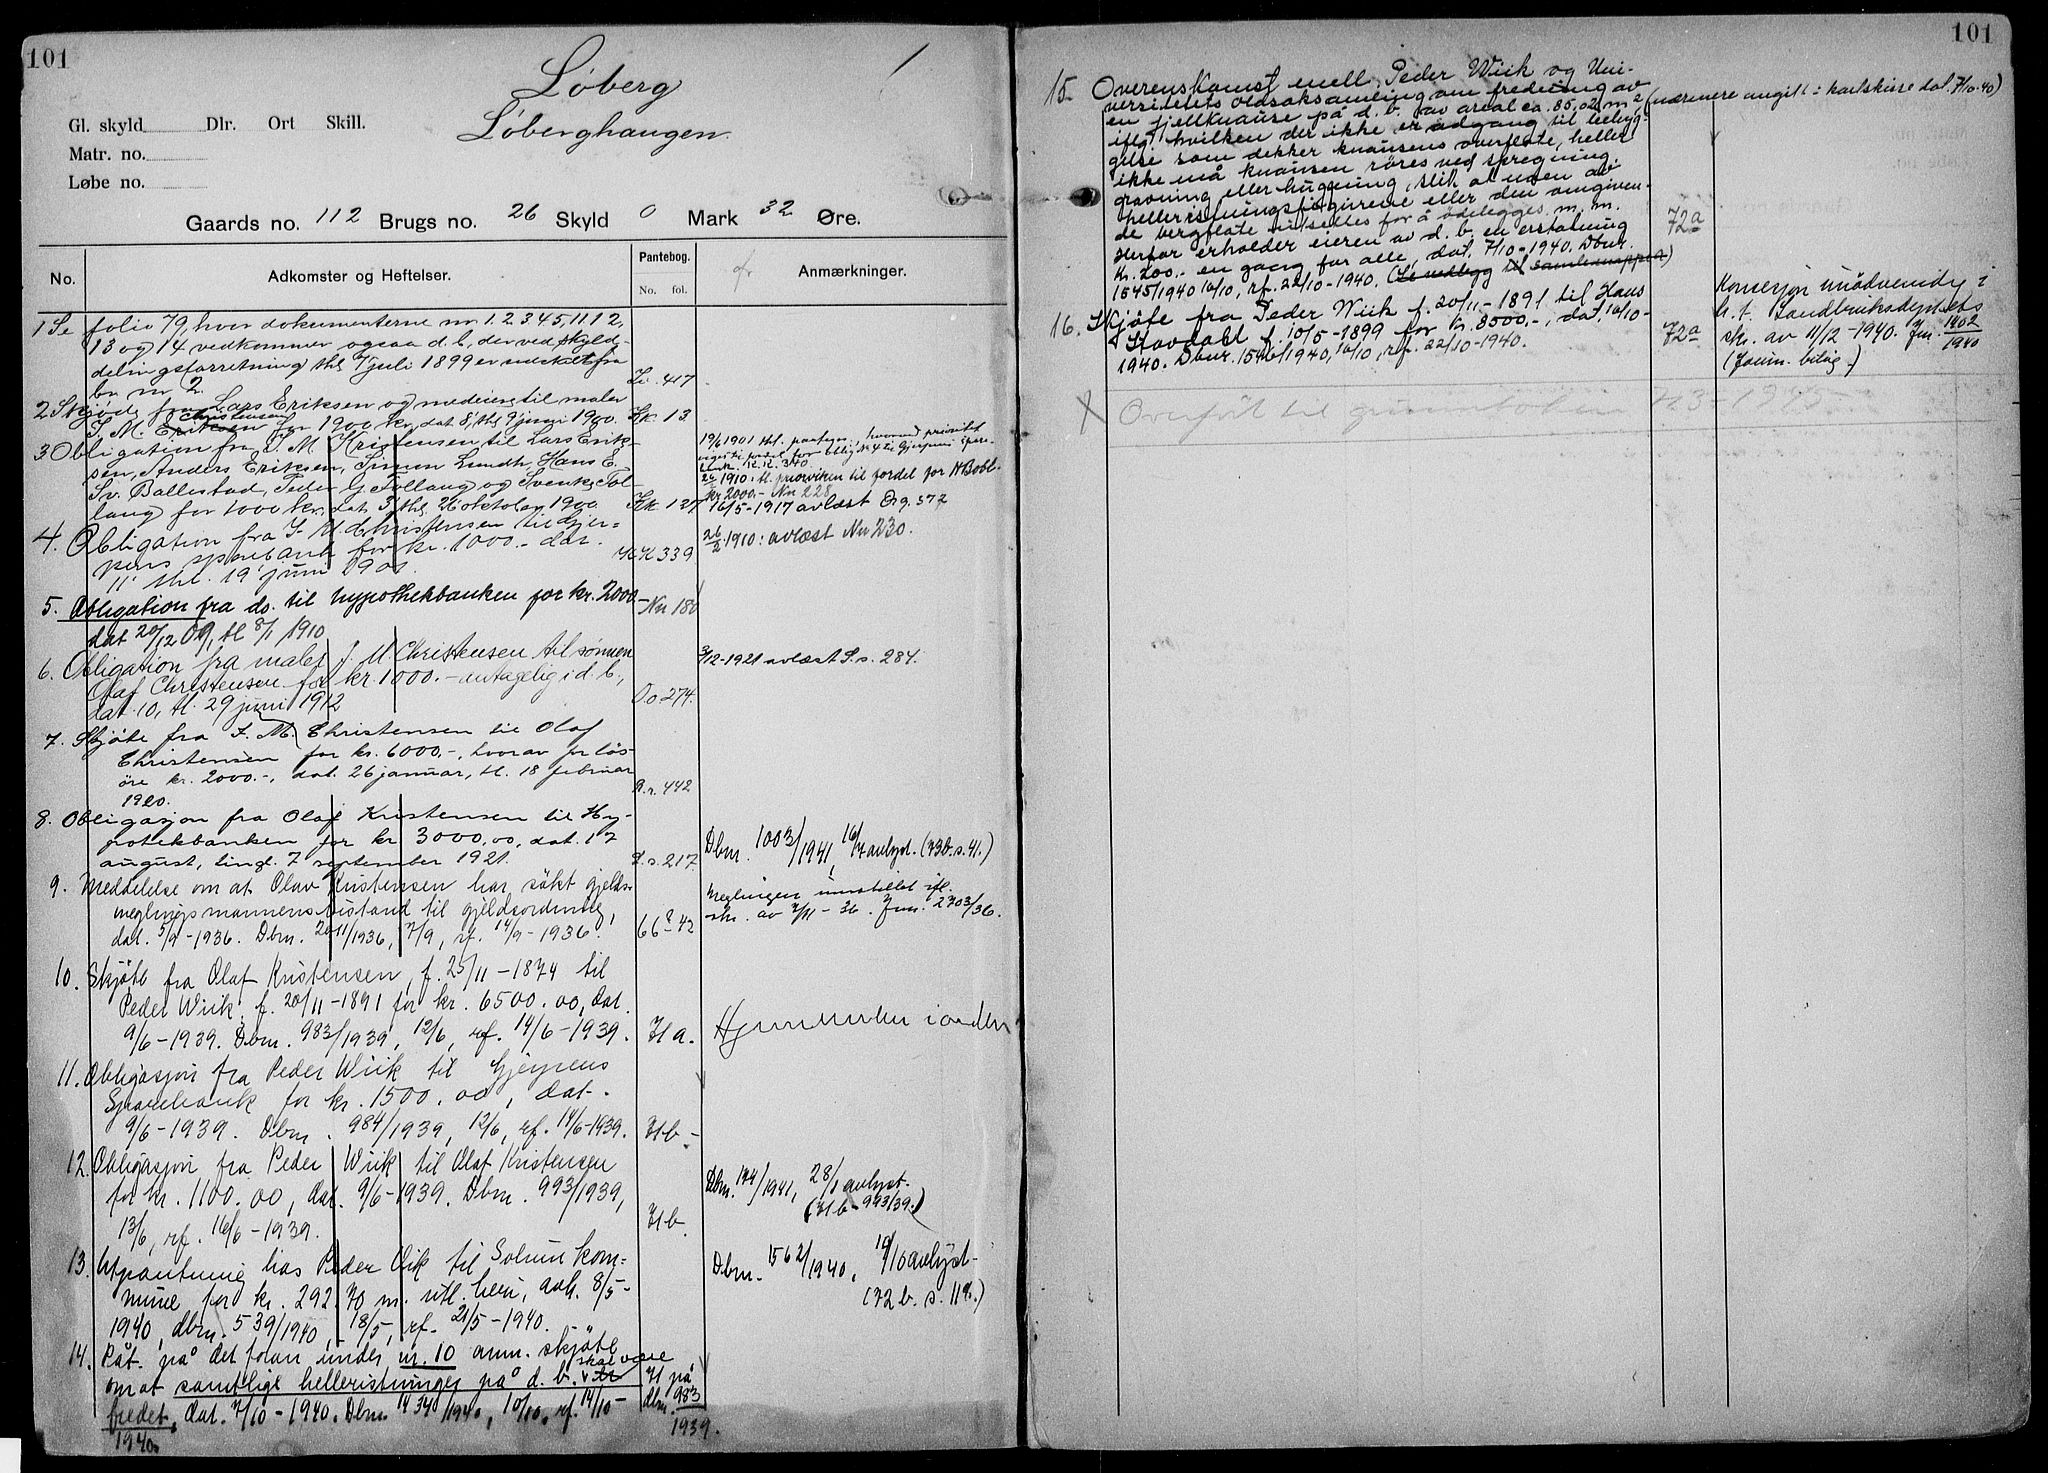 101
Løberg
Løberghaugen.
1
Gl. skyld Dlr. Ort Skill.
Matr. no.
Løbe no.
Gaards no. 112 Brugs no. 26 Skyld 0 Mark 32 Øre.
No. Adkomster og Heftelser. Pantebog. No. fol. Anmærkninger.
1 Se folio 79, hvor dokumenterne nr 1.2.3.4.5.11.12,
13 og 14 vedkommer ogsaa d.b., der ved skyld-
delingsforretning thl. 7 juli 1899 er udskilt fra
br. nr 2. 417
2 Skjøde fra Lars Eriksen og medeiere til maler
Christensen
J. M. Eriksen for 1900 kr, dat 8, thl 9 juni 1900. Kk. 13
3 Obligation fra J. M. Kristensen til Lars Erik-
sen, Anders Eriksen, Simon Lundh, Hans E.
Sv. Ballestad, Peder G. Follaug og Svenke Fol-
laug for 1000 kr, dat 3, thl. 26 oktober 1900. Kk. 127
19/6 1901 thl. paategn., hvorved prioritet
viges til fordel for oblig. Nr 4 til Gjerpens spare-
bank. 340
26/2 1910: tl. priorviken til fordel for N Bobl.
kr 2000.- Nn 228
16/5-1917 avlæst Q q. 572
4. Obligation fra J. M. Christensen til Gjer-
pens sparebank for kr. 1000.- dat.
11' thl. 19' juni 1901. Kk 339
26/2 1910: avlæst Nn 230.
5. Obligation fra ds. til hypothekbanken for kr. 2000.- Nn 180
dat 20/12 09, tl 8/1 1910
6. Obligation fra maler J. M. Christensen til sønnen
Olaf Christensen for kr. 1000.- antagelig i d. b.,
dat. 10, tl. 29 juni 1912 Oo 274.
3/12-1921 avlæst S.s. 284.
7. Skjøte fra J. M. Christensen til Olaf
Christensen for kr. 6000.-, hvorav for løs-
øre kr. 2000.-, dat. 26 januar, tl. 18 februar
1920. R.r. 442
8. Obligasjon fra Olaf Kristensen til Hy-
potekbanken for kr 3000,00, dat. 17
august, tingl. 7 september 1921. S.s 217.
Dbnr. 1003/1941, 16/7 avlyst. (73b. s. 41.)
9. Meddelelse om at Olav Kristensen har søkt gjelds-
meglingsmannens bistand til gjeldsordning,
dat. 5/9-1936. Dbnr. 2011/1936, 7/9, rf. 14/9-1936. 66a 42
Meglingen innstillet ifl.
skr. av 7/11-36. Jnr. 2703/36.
10. Skjøte fra Olaf Kristensen, f. 25/11-1874 til
Peder Wiik f. 20/11-1891 for kr. 6500.00, dat.
9/6-1939. Dbnr. 983/1939, 12/6, rf. 14/6-1939. 71 a.
Hjemmelen i orden
11. Obligasjon fra Peder Wiik til Gjerpens
Sparebank for kr. 1500.00, dat.
9/6-1939. Dbnr. 984/1939, 12/6, rf. 14/6-1939. 71 b-
12. Obligasjon fra Peder Wiik til Olaf Kristensen
for kr. 1100.00, dat. 9/6-1939. Dbnr. 993/1939,
13/6, rf. 16/6-1939. 71 b.
Dbnr. 144/1941, 28/1 avlyst.
(71 b - 993/39.)
13. Utpantning hos Peder Vik til Solum kom-
mune for kr. 292.70 m. utl. heri, avh. 8/5-
1940, dbnr. 539/1940, 18/5, rf. 21/5-1940.
Dbnr. 1562/1940, 14/10 avlyst-
(72 b. s. 119.)
14. Påt. på det foran under nr. 10 anm. skjøte
skal være
om at samtlige helleristninger på d. b.
fredet, dat. 7/10-1940. Dbnr. 1434/1940, 10/10, rf. 14/10-
1940.
71 på
dbnr. 983
1939.
101
15. Overenskomst mell. Peder Wiik og Uni-
versitetets oldsaksamling om fredning av
en fjellknause på d. b. av areal ca. 85,02 m2 (nærmere angitt i kartskisse dat. 7/10-40)
iflg. hvilken der ikke er adgang til bebyg-
gelse som dekker knausens overflate, heller
ikke må knausen røres ved sprengning,
gravning eller hugning, slik at noen av
helleristningsfigurene eller den omgiven-
de bergflate utsettes for å ødelegges m. m.
Herfor erholder eieren av d. b. en erstatning
kr. 200.- en gang for alle, dat. 7/10-1940. Dbnr.
1545/1940 16/10, rf. 22/10-1940. (Se vedlegg til samlemappen) 72a
16. Skjøte fra Peder Wiik f. 20/11-1891 til Hans
Stavdahl f. 10/5-1899 for kr. 8500.-, dat. 16/10-
1940. Dbnr. 1546/1940, 16/10, rf. 22/10-1940. 72a
Konsesjon unødvendig i
h.t. Landbruksdeptets
skr. av 11/12-1940. Jnr. 1402/1940
(Journ. bilag.)
Overført til grunnboken